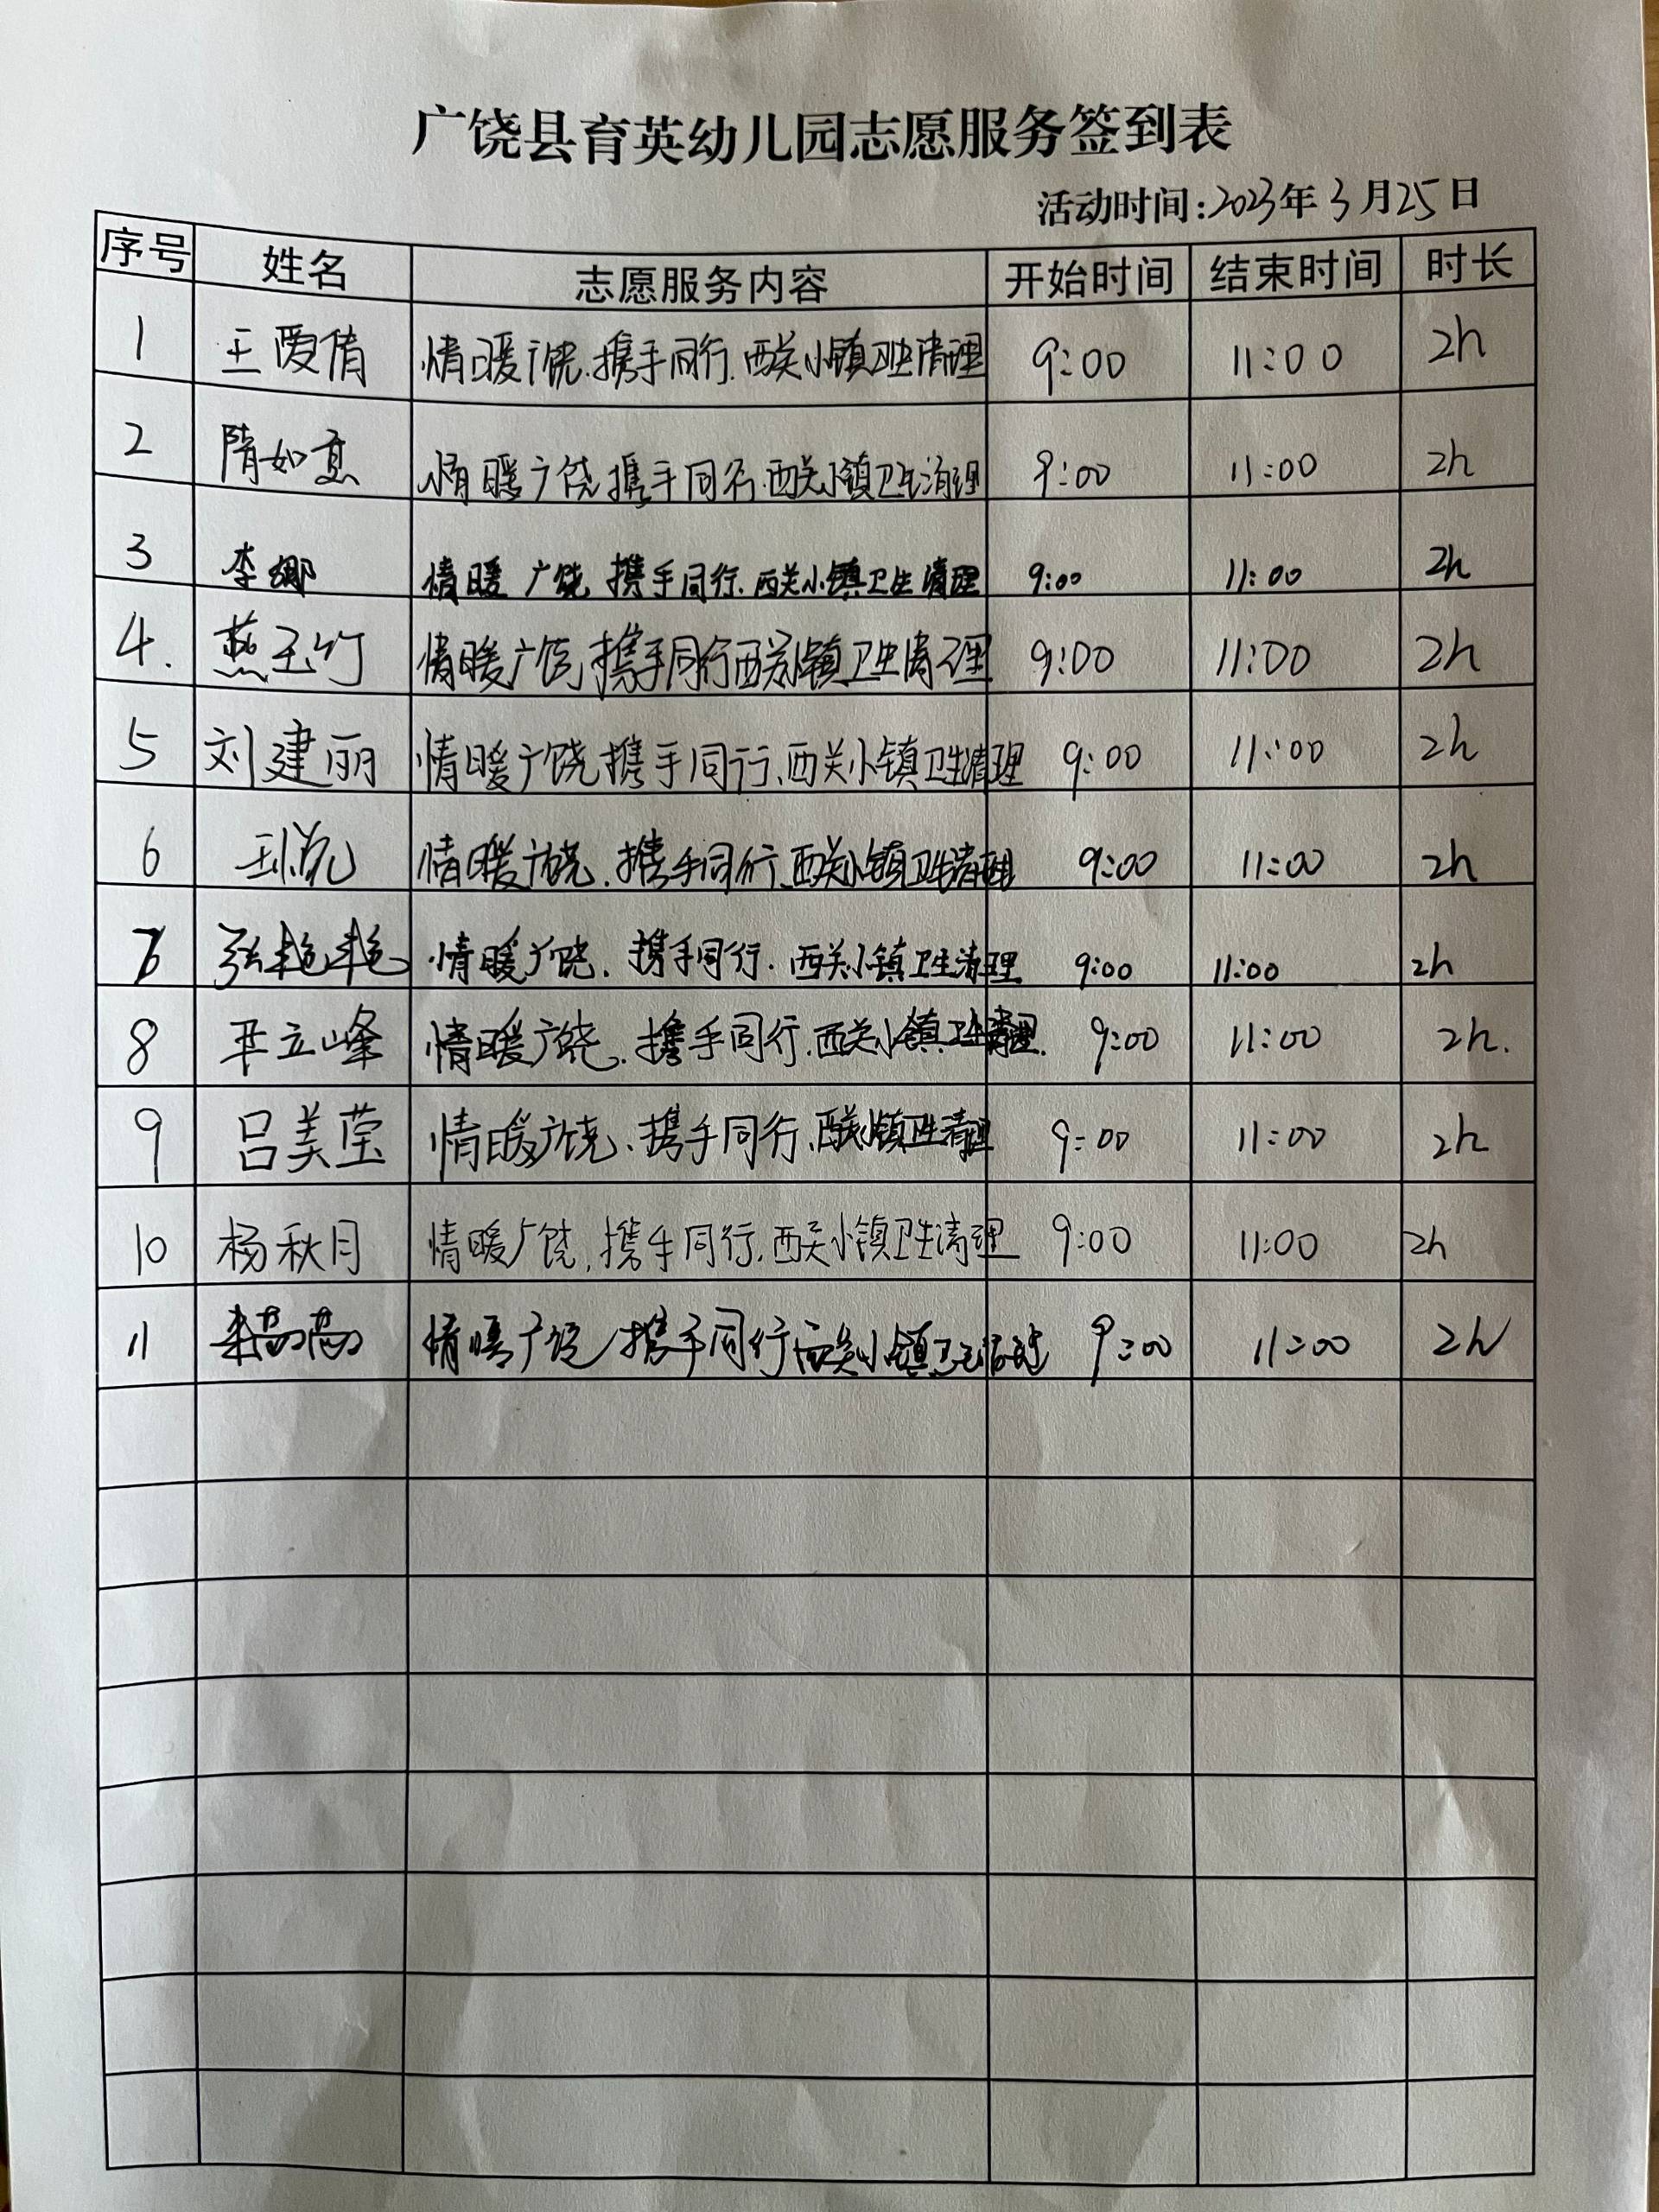 广饶县育英幼儿园志愿服务签到表
活动时间:2023年3月25日
序号 姓名 志愿服务内容 开始时间 结束时间 时长
1 王爱倩 情暖广饶.携手同行.西关小镇卫生清理 9:00 11:00 2h
2 隋如意 情暖广饶携手同行.西关小镇卫生清理 9:00 11:00 2h
3 李娜 情暖广饶.携手同行.西关小镇卫生清理 9:00 11:00 2h
4. 燕玉竹 情暖广饶,携手同行西关小镇卫生清理 9:00 11:00 2h
5 刘建丽 情暖广饶携手同行、西关小镇卫生清理 9:00 11:00 2h
6 情暖广饶.携手同行、西关小镇卫生清理 9:00 11:00 2h
7 张艳艳 情暖广饶.携手同行.西关小镇卫生清理 9:00 11:00 2h
8 立峰 情暖广饶.携手同行.西关小镇卫生清理. 9:00 11:00 2h.
9 吕美莹 情暖广饶、携手同行、西关小镇卫生清理 9:00 11:00 2h
10 杨秋月 情暖广饶,携手同行.西关小镇卫生清理 9:00 11:00 2h
11 情暖广饶 携手同行西关小镇卫生清理 9:00 11:00 2h